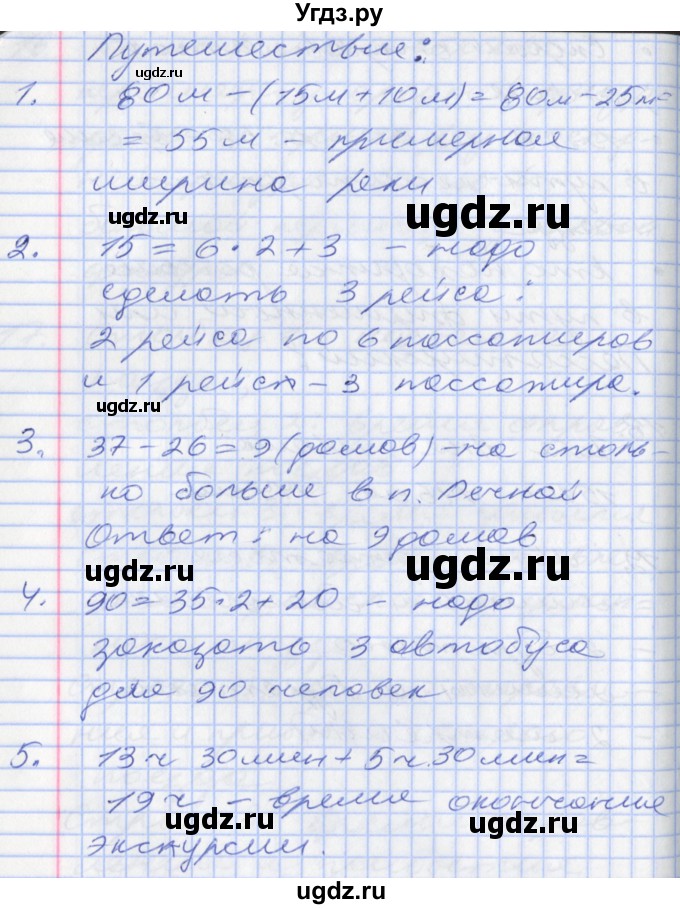 Угдз.ру
Путешествие:
ugdz.ru
1. 80м – (15м + 10м) = 80м – 25м =
= 55м – примерная
ugdz.ru
ширина реки
ugdz.ru ugdz.ru
2. 15 = 6 · 2 + 3 – надо
сделать 3 рейса:
ugdz.ru
2 рейса по 6 пассажиров
и 1 рейс – 3 пассажира.
ugdz.ru ugdz.ru
3. 37 – 26 = 9 (домов) – на столь-
ко больше в п. Речной
ugdz.ru
Ответ: на 9 домов
ugdz.ru ugdz.ru
4. 90 = 35 · 2 + 20 – надо
заказать 3 автобуса
ugdz.ru
для 90 человек
ugdz.ru
5. 13ч 30мин + 5ч. 30мин =
19ч – время окончание
ugdz.ru ugdz.ru
экскурсии.
ugdz.ru